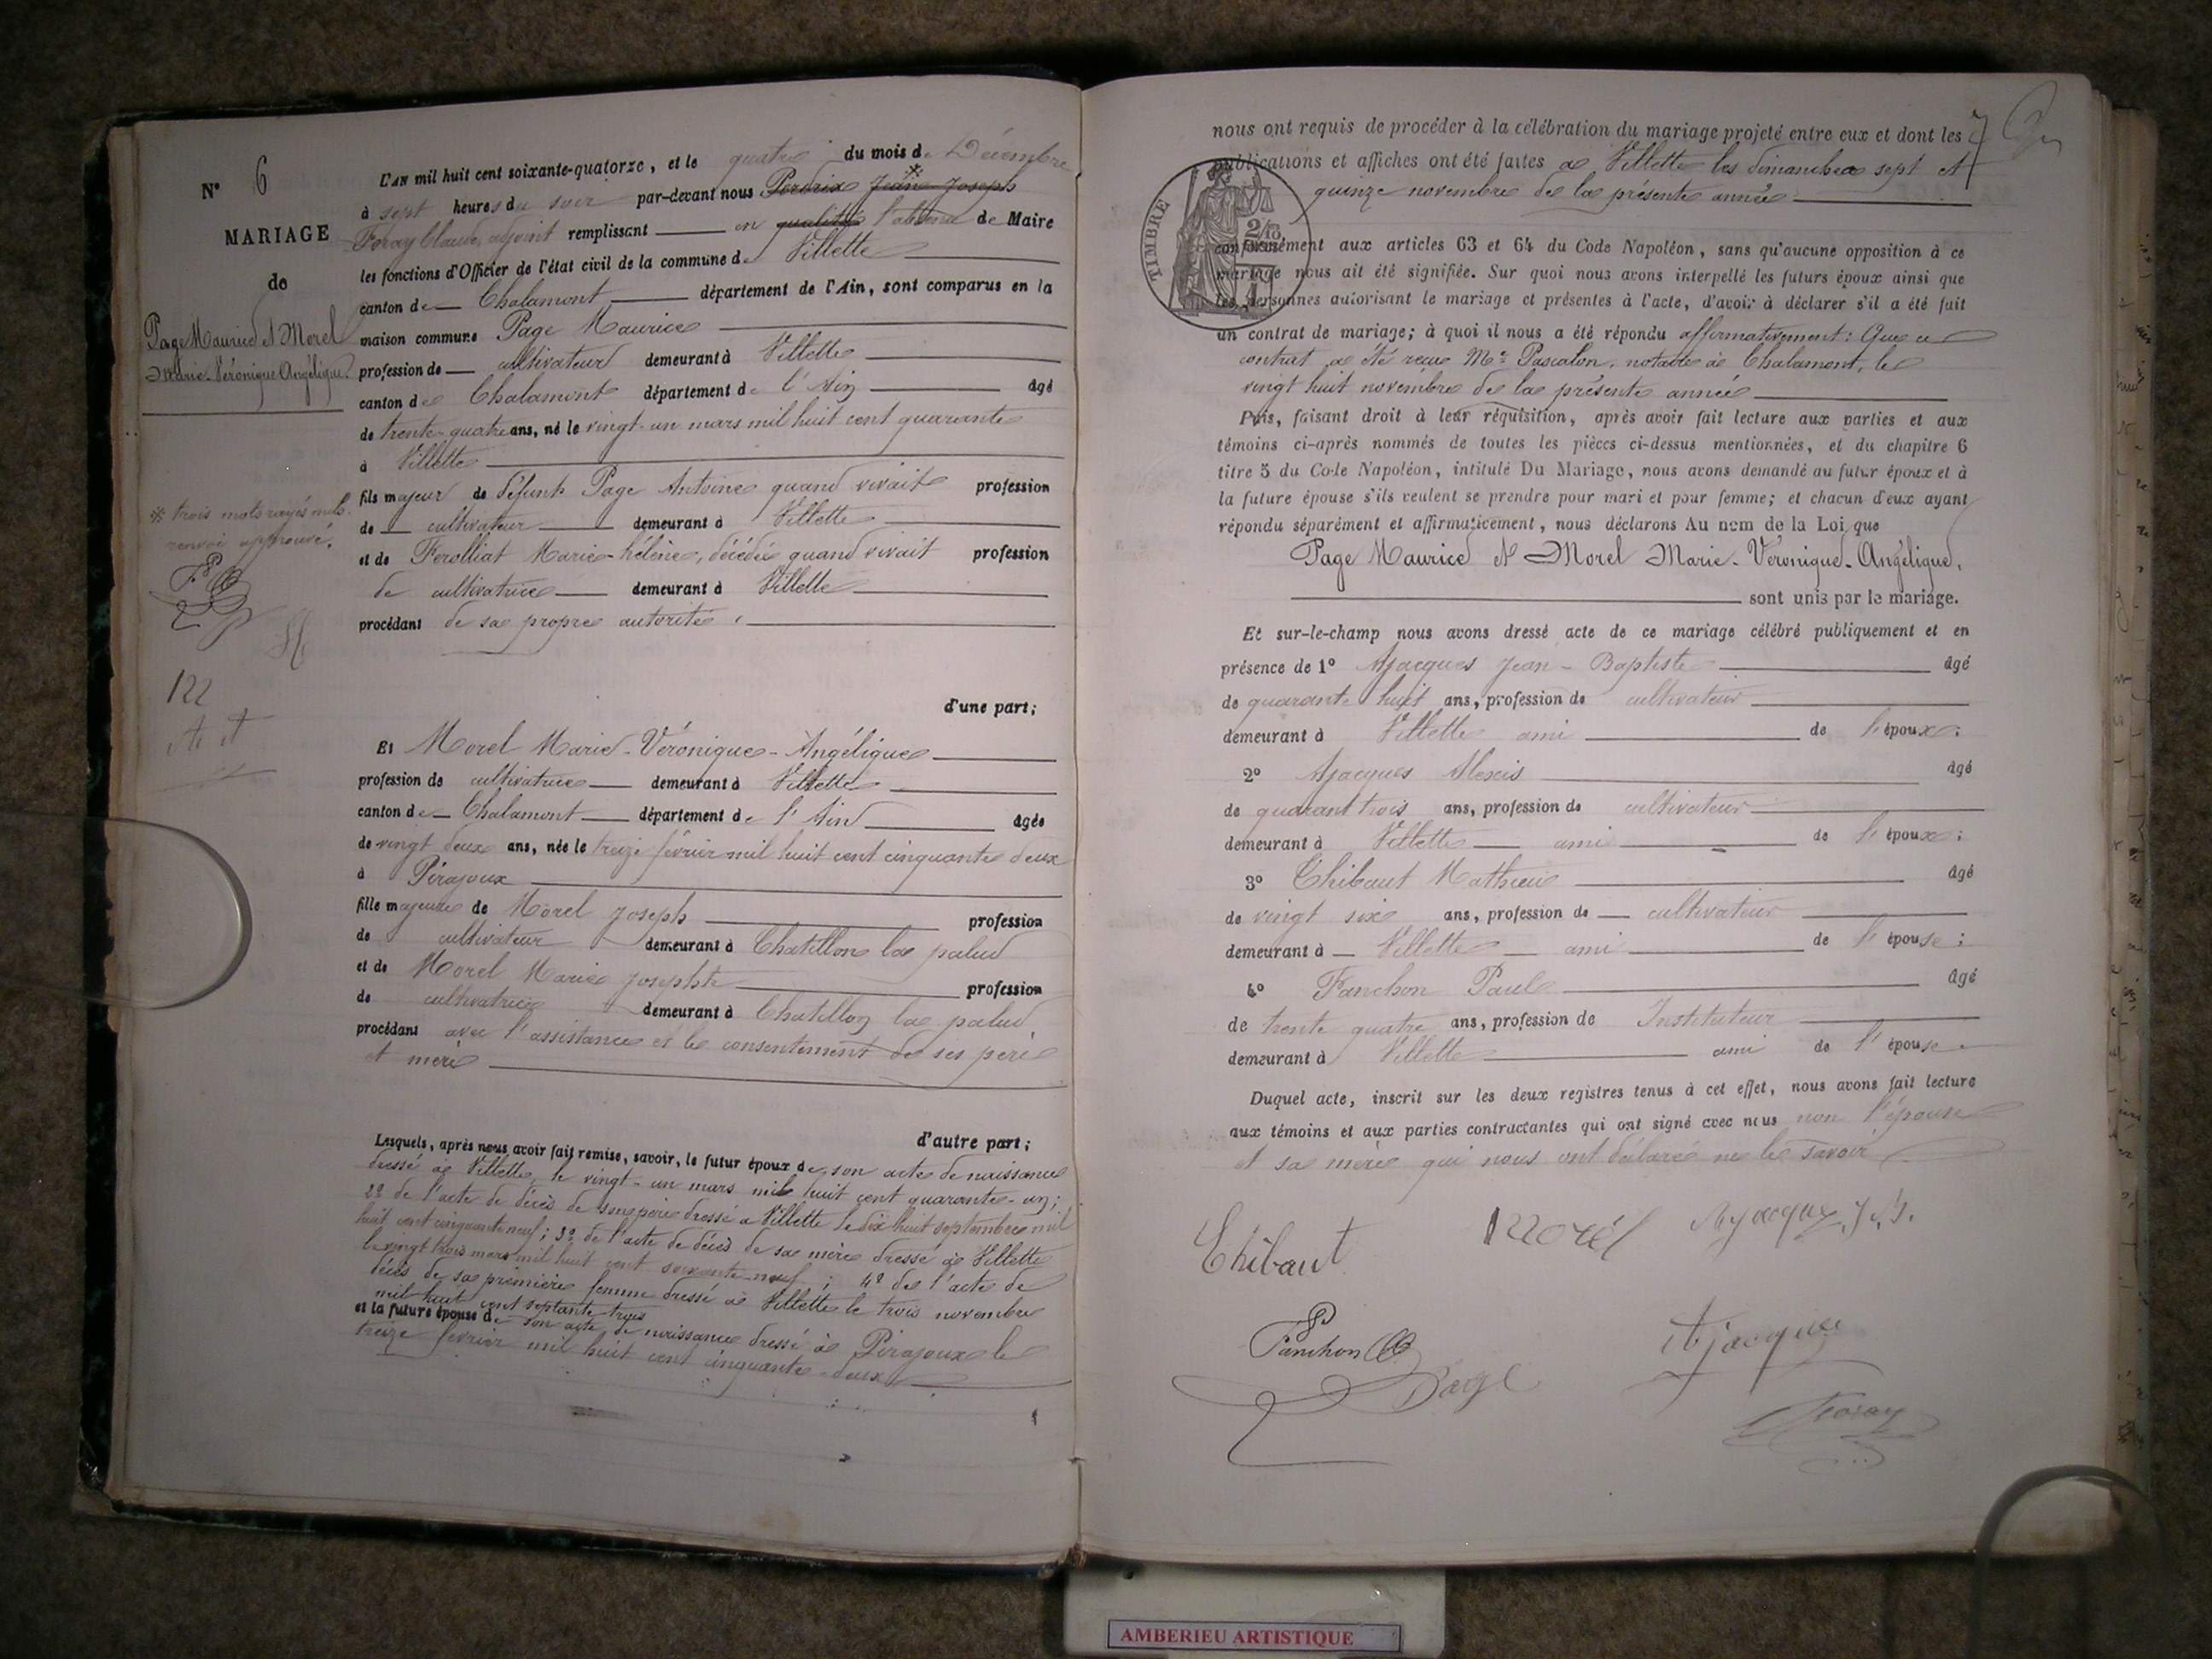 N° 6
MARIAGE
de
Page Maurice et Morel
Marie-Véronique Angélique.
* trois mots rayés nuls.
renvoi approuvé.
122
L'AN mil huit cent soixante-quatorze, et le quatre du mois de Décembre
à sept heures du soir par-devant nous Perdrix Jean Joseph
Foray Claude, adjoint remplissant en qualité l'absence de Maire
les fonctions d'Officier de l'état civil de la commune de Villette
canton de Chalamont département de l'Ain, sont comparus en la
maison commune Page Maurice
profession de cultivateur demeurant à Villette
canton de Chalamont département de l'Ain âgé
de trente-quatre ans, né le vingt-un mars mil huit cent quarante
à Villette
fils majeur de défunt Page Antoine quand vivait profession
de cultivateur demeurant à Villette
et de Ferolliat Marie-hélène, décédée quand vivait profession
de cultivatrice demeurant à Villette
procédant de sa propre autorité
d'une part;
Et Morel Marie-Véronique-Angélique
profession de cultivatrice demeurant à Villette
canton de Chalamont département de l'Ain âgée
de vingt deux ans, née le treize février mil huit cent cinquante deux
à Pirajoux
fille majeure de Morel Joseph profession
de cultivateur demeurant à Chatillon la palud
et de Morel Marie Josephte profession
de cultivatrice demeurant à Chatillon la palud,
procédant avec l'assistance et le consentement de ses père
et mère
d'autre part;
Lesquels, après nous avoir fait remise, savoir, le futur époux de son acte de naissance
dressé à Villette, le vingt-un mars mil huit cent quarante-un;
2° de l'acte de décès de son père dressé à Villette le dix huit septembre mil
huit cent cinquante neuf; 3° de l'acte de décès de sa mère dressé à Villette
le vingt trois mars mil huit cent soixante-neuf; 4° de l'acte de
décès de sa première femme dressé à Villette le trois novembre
mil huit cent septante trois
et la future épouse de son acte de naissance dressé à Pirajoux le
treize février mil huit cent cinquante-deux
7
nous ont requis de procéder à la célébration du mariage projeté entre eux et dont les
publications et affiches ont été faites à Villette les dimanches sept et
quinze novembre de la présente année
TIMBRE
conformément aux articles 63 et 64 du Code Napoléon, sans qu'aucune opposition à ce
mariage nous ait été signifiée. Sur quoi nous avons interpellé les futurs époux ainsi que
les personnes autorisant le mariage et présentes à l'acte, d'avoir à déclarer s'il a été fait
un contrat de mariage; à quoi il nous a été répondu affirmativement: Que ce
contrat a été reçu Me Pascalon, notaire à Chalamont, le
vingt huit novembre de la présente année
Puis, faisant droit à leur réquisition, après avoir fait lecture aux parties et aux
témoins ci-après nommés de toutes les pièces ci-dessus mentionnées, et du chapitre 6
titre 5 du Code Napoléon, intitulé Du Mariage, nous avons demandé au futur époux et à
la future épouse s'ils veulent se prendre pour mari et pour femme; et chacun d'eux ayant
répondu séparément et affirmativement, nous déclarons Au nom de la Loi que
Page Maurice et Morel Marie-Véronique-Angélique,
sont unis par le mariage.
Et sur-le-champ nous avons dressé acte de ce mariage célébré publiquement et en
présence de 1° Ajacques Jean-Baptiste âgé
de quarante huit ans, profession de cultivateur
demeurant à Villette ami de l'époux;
2° Ajacques Alexis âgé
de quarant trois ans, profession de cultivateur
demeurant à Villette ami de l'époux;
3° Thibaut Mathieu âgé
de vingt six ans, profession de cultivateur
demeurant à Villette ami de l'épouse;
4° Fanchon Paul âgé
de trente quatre ans, profession de Instituteur
demeurant à Villette ami de l'épouse.
Duquel acte, inscrit sur les deux registres tenus à cet effet, nous avons fait lecture
aux témoins et aux parties contractantes qui ont signé avec nous non l'épouse
et sa mère qui nous ont déclaré ne le savoir
Thibaut Morel Ajacques J.B.
Fanchon Page Ajacques
Foray
AMBERIEU ARTISTIQUE